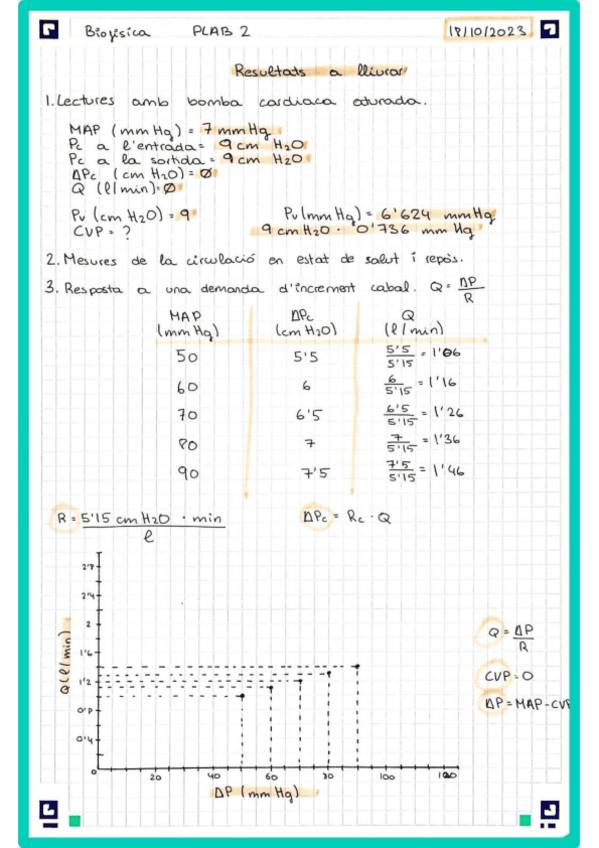 Biofísica PLAB 2 18/10/2023
Resultats a lliurar
1. Lectures amb bomba cardiaca aturada.
MAP (mmHg) = 7 mmHg
Pc a l'entrada = 9 cm H2O
Pc a la sortida = 9 cm H2O
ΔPc (cm H2O) = Ø
Q (l/min) = Ø
Pv (cm H2O) = 9 Pv (mm Hg) = 6'624 mmHg
CVP = ? 9 cm H2O · 0'736 mm Hg
2. Mesures de la circulació en estat de salut i repòs.
3. Resposta a una demanda d'increment cabal. Q = ΔP / R
MAP (mm Hg) ΔPc (cm H2O) Q (l/min)
50 5'5 5'5 / 5'15 = 1'06
60 6 6 / 5'15 = 1'16
70 6'5 6'5 / 5'15 = 1'26
80 7 7 / 5'15 = 1'36
90 7'5 7'5 / 5'15 = 1'46
R = 5'15 cm H2O · min / l ΔPc = Rc · Q
Q (l/min)
2'8
2'4
2
1'6
1'2
0'8
0'4
0 20 40 60 80 100 120
ΔP (mm Hg)
Q = ΔP / R
CVP = 0
ΔP = MAP - CVP